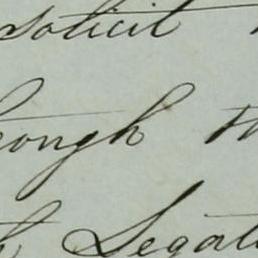 solicit
rough th
Legat